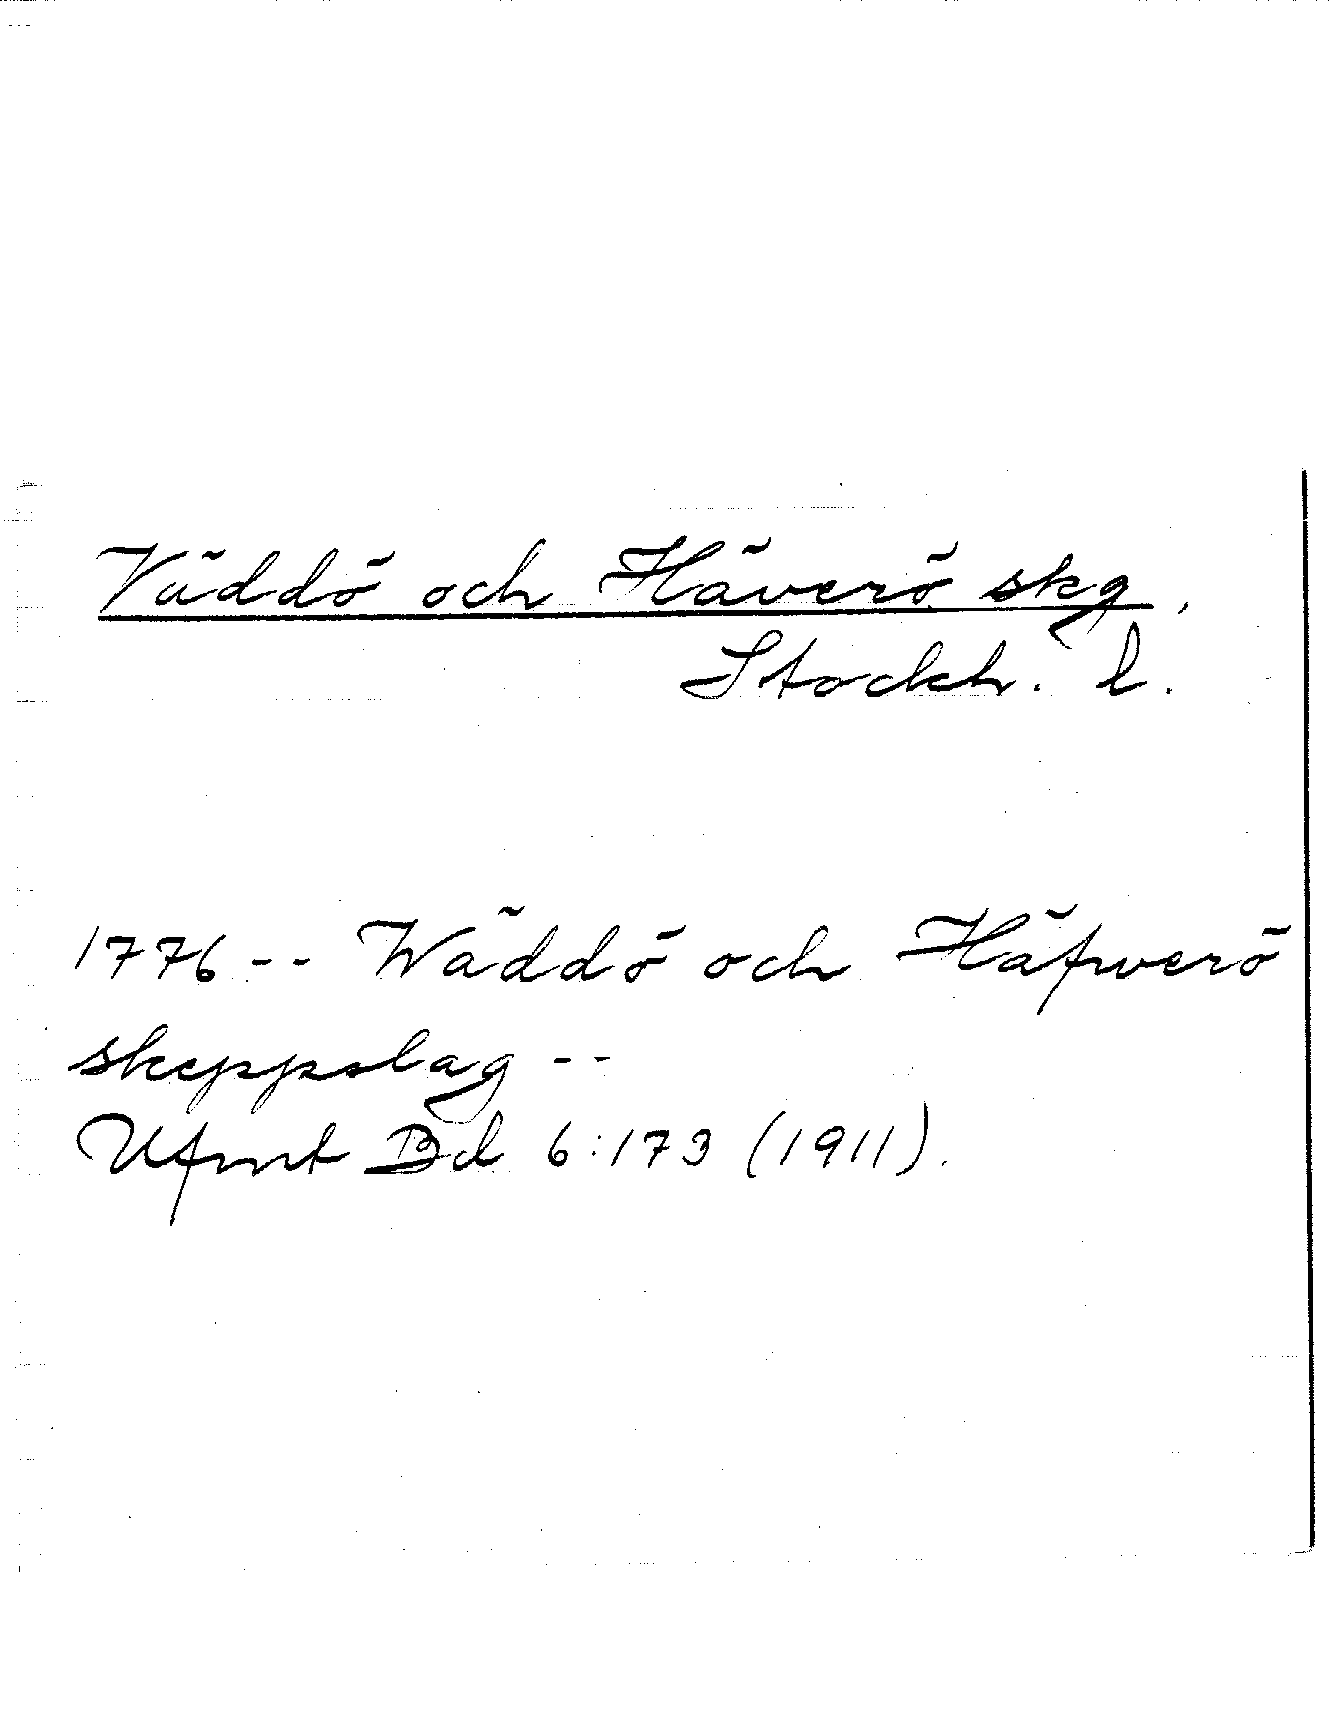 Väddö och Häverö skg,
Stockh. l.
1776 -- Wäddö och Häfwerö
skeppslag --
Ufmt Bd 6:173 (1911).